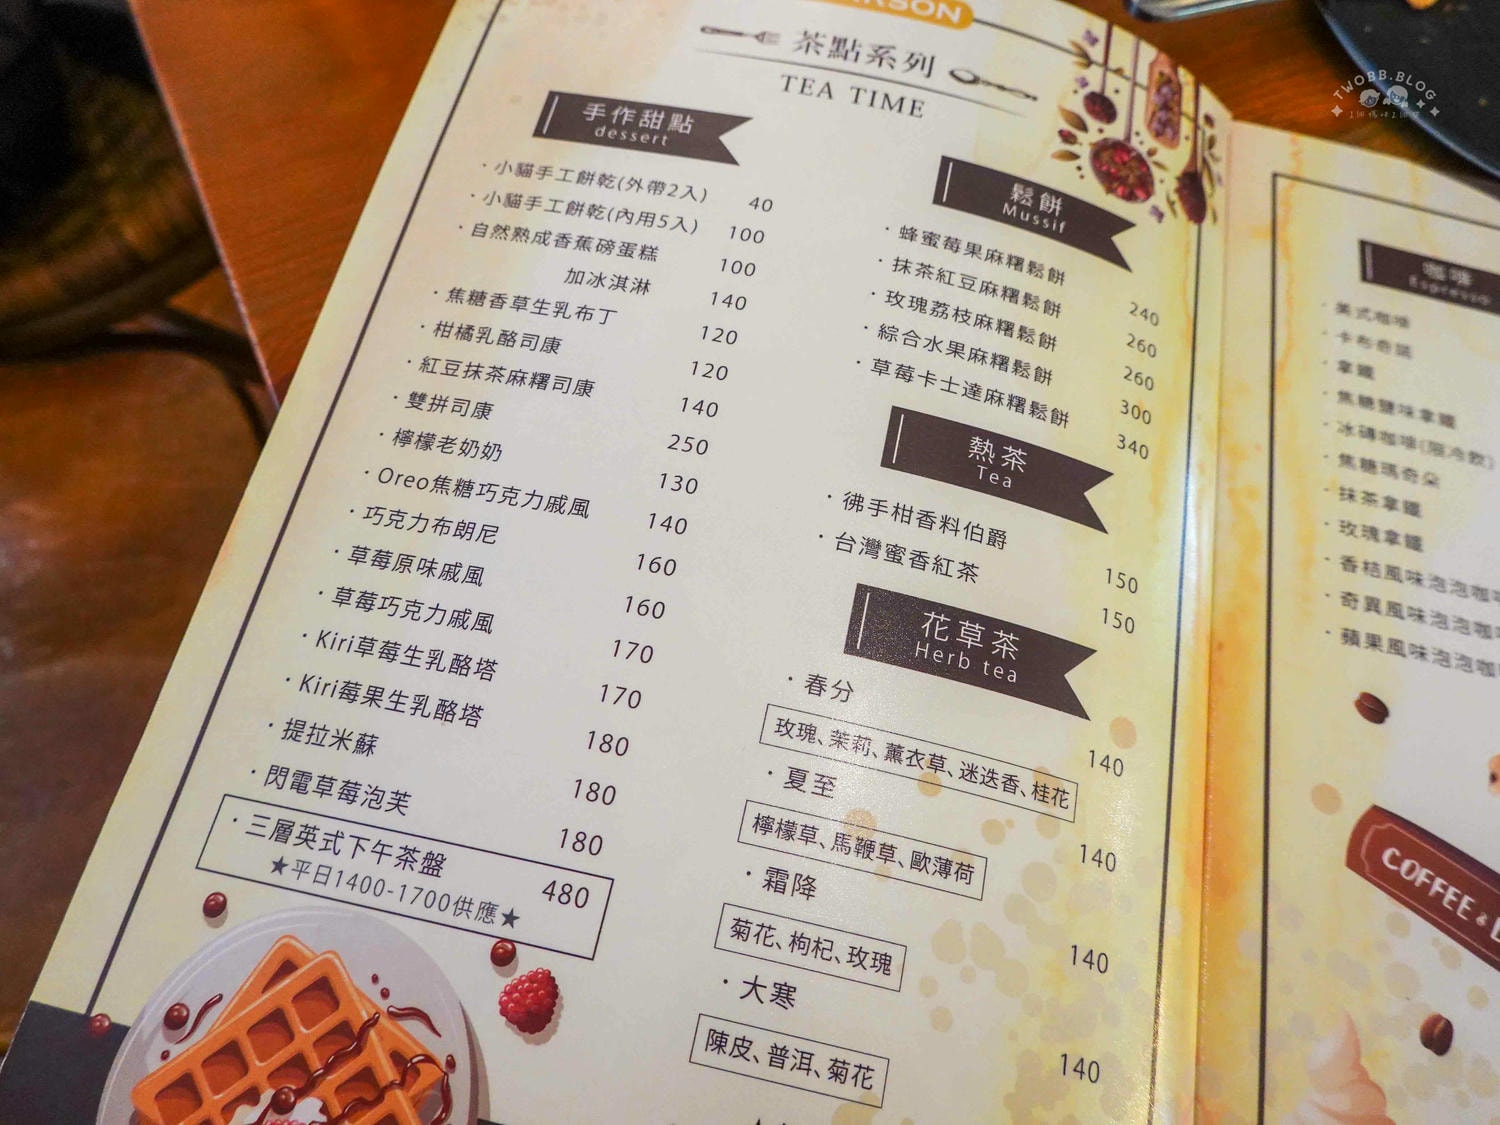 RSON
茶點系列
TEA TIME
手作甜點
dessert
·小貓手工餅乾(外帶2入) 40
·小貓手工餅乾(內用5入) 100
·自然熟成香蕉磅蛋糕 100
加冰淇淋 140
·焦糖香草生乳布丁 120
·柑橘乳酪司康 120
·紅豆抹茶麻糬司康 140
·雙拼司康 250
·檸檬老奶奶 130
·Oreo焦糖巧克力戚風 140
·巧克力布朗尼 160
·草莓原味戚風 160
·草莓巧克力戚風 170
·Kiri草莓生乳酪塔 170
·Kiri莓果生乳酪塔 180
·提拉米蘇 180
·閃電草莓泡芙 180
·三層英式下午茶盤 480
★平日1400-1700供應★
鬆餅
Mussif
·蜂蜜莓果麻糬鬆餅 240
·抹茶紅豆麻糬鬆餅 260
·玫瑰荔枝麻糬鬆餅 260
·綜合水果麻糬鬆餅 300
·草莓卡士達麻糬鬆餅 340
熱茶
Tea
·彿手柑香料伯爵 150
·台灣蜜香紅茶 150
花草茶
Herb tea
·春分 140
玫瑰、茉莉、薰衣草、迷迭香、桂花
·夏至 140
檸檬草、馬鞭草、歐薄荷
·霜降 140
菊花、枸杞、玫瑰
·大寒 140
陳皮、普洱、菊花
咖啡
Espresso
·美式咖啡
·卡布奇諾
·拿鐵
·焦糖鹽味拿鐵
·冰磚咖啡(限冷飲)
·焦糖瑪奇朵
·抹茶拿鐵
·玫瑰拿鐵
·香桔風味泡泡咖啡
·奇異風味泡泡咖
·蘋果風味泡泡咖
COFFEE &
TWOBB.BLOG